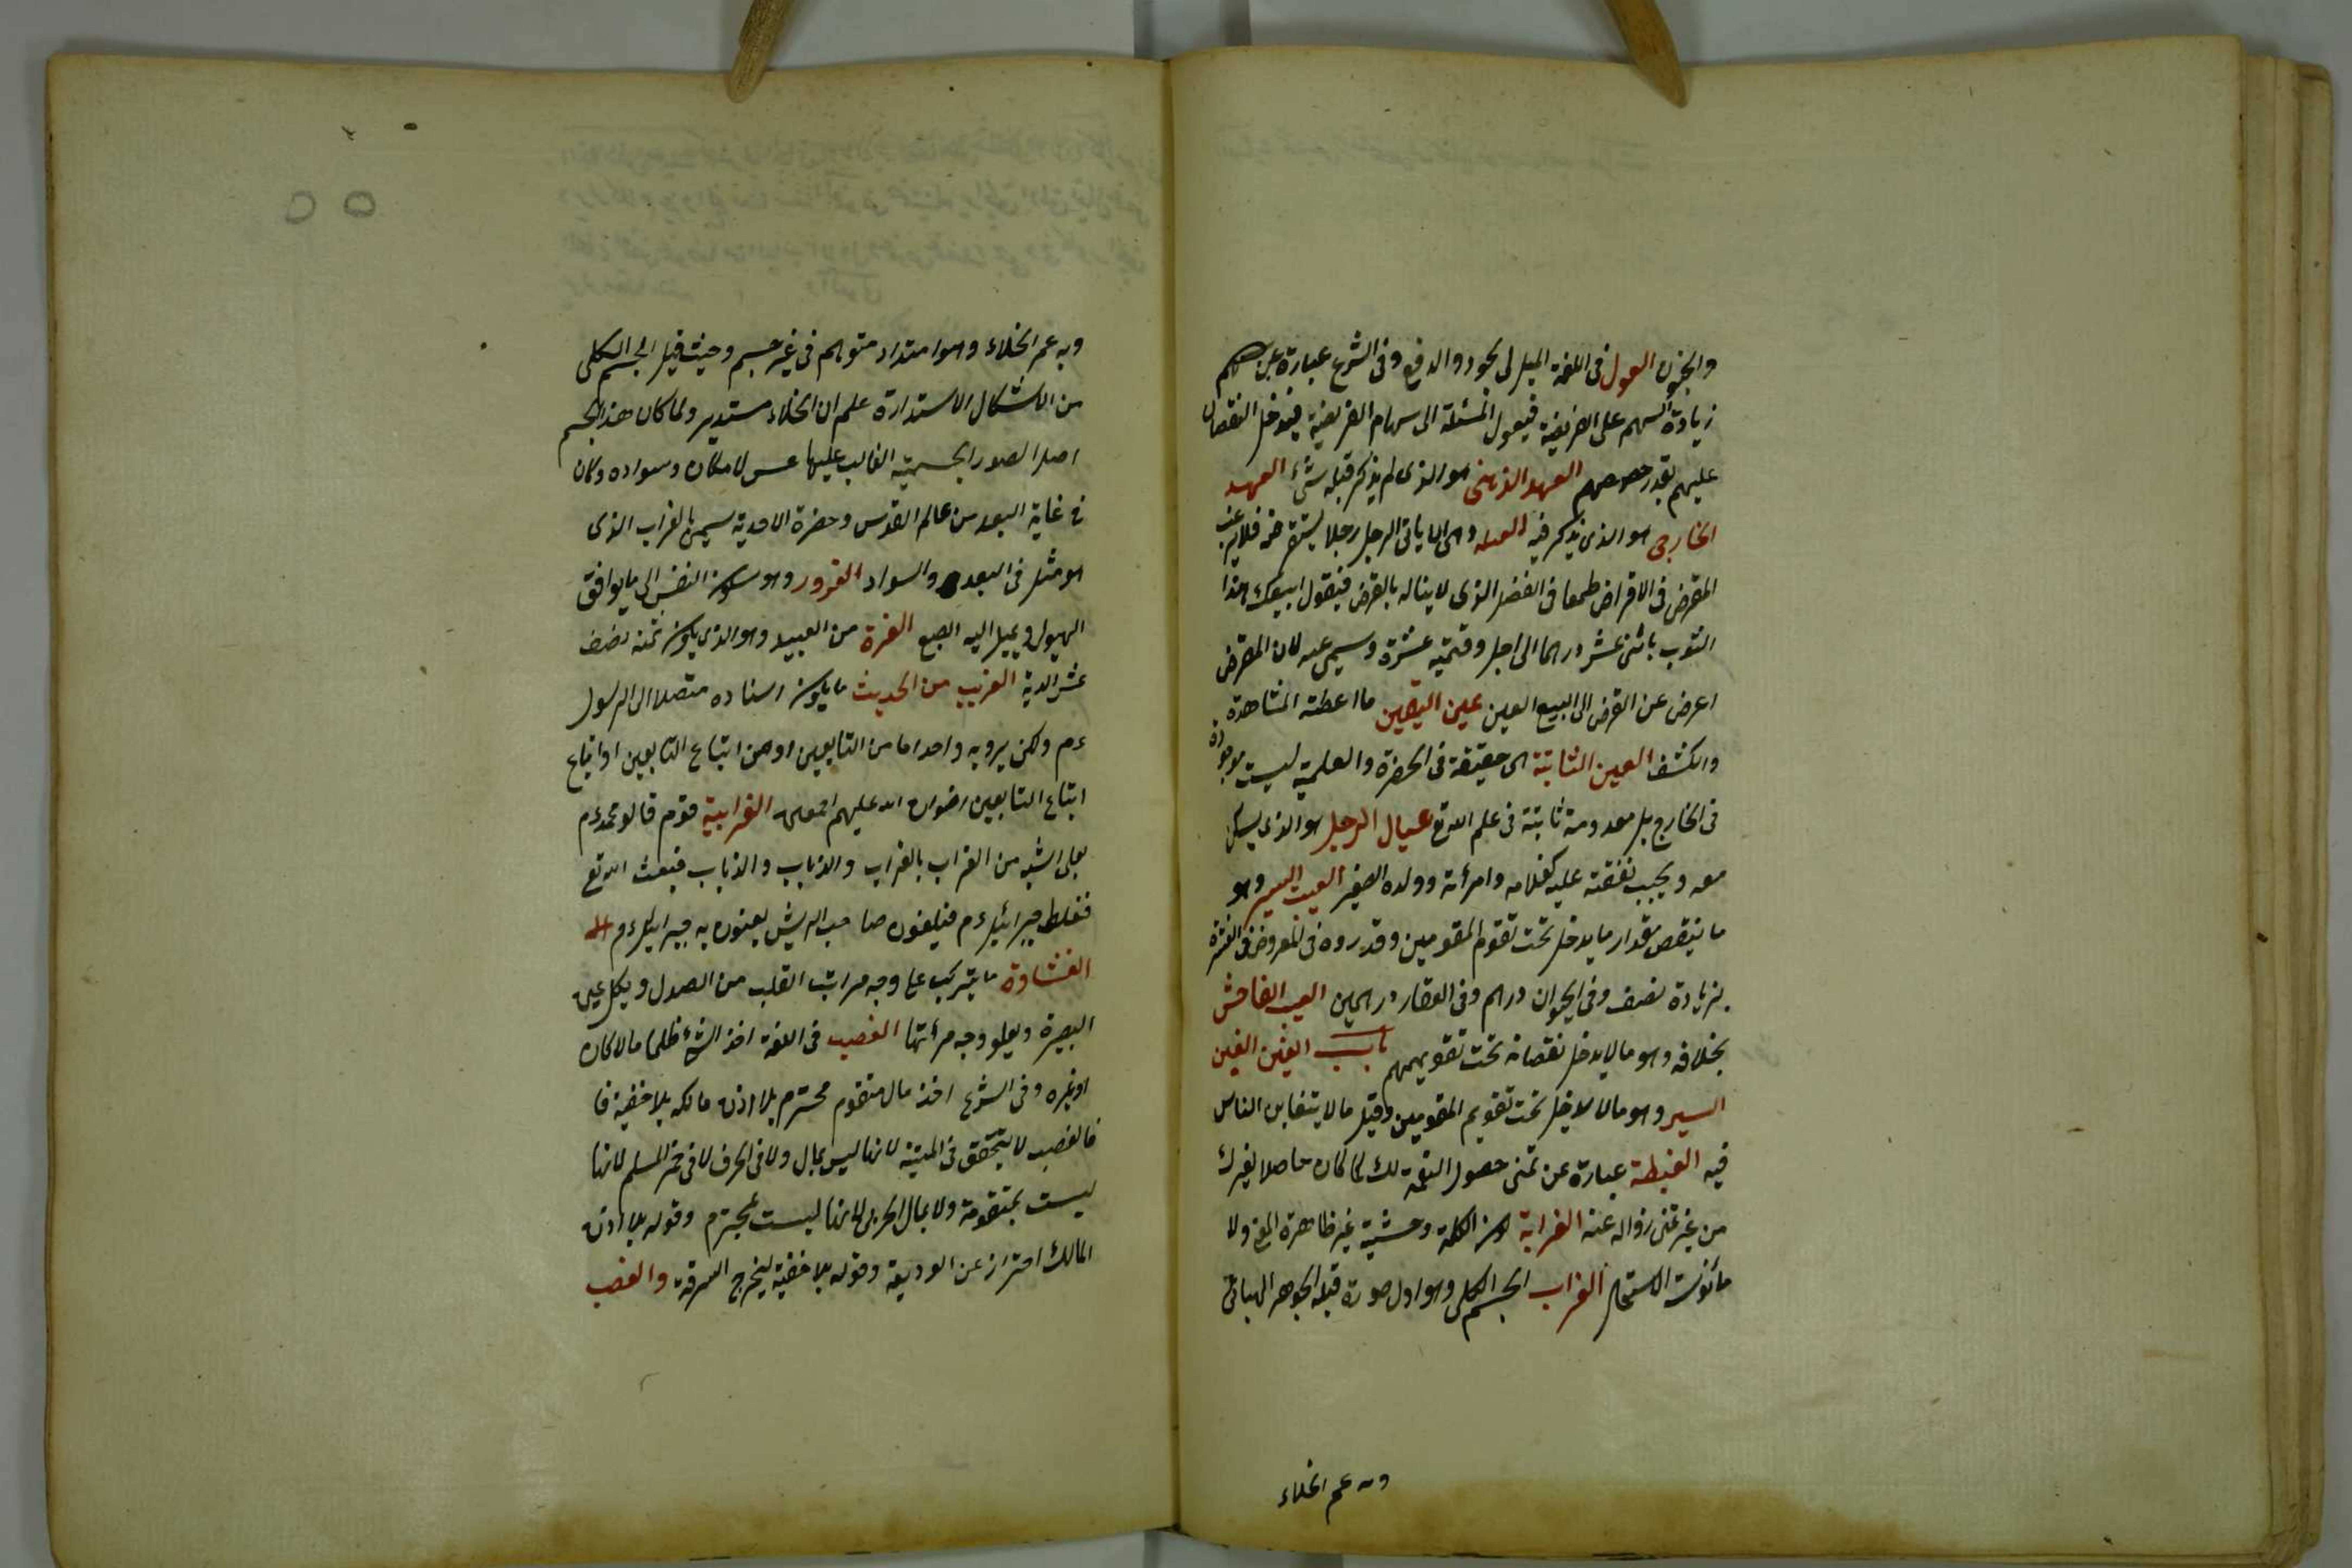 والجنون العول فى اللغة الميل الى الجور والدفع وفى الشرع عبارة عن
زيادة السهم على الفريضة فيعول المسئلة الى سهام الفريضة فيدخل النقصان
عليهم بقدر حصصهم العهد الذهنى هو الذى لم يذكر قبله شئ العهد
الخارجى هو الذى يذكر فيه العينه وهى ان ياتى الرجل رجلا يستقرضه فلا يرغب
المقرض فى الاقراض طمعا فى الفضل الذى لا يناله بالقرض فيقول ابيعك هذا
الثوب باثنى عشر درهما الى اجل وقيمته عشرة ويسمى عينه لان المقرض
اعرض عن القرض الى البيع العين عين اليقين ما اعطته المشاهدة
والكشف العين الثابتة هى حقيقة فى الحضرة والعلمية ليست موجودة
فى الخارج بل معدومة ثابتة فى علم الله تع عيال الرجل هو الذى يسكن
معه ويجب نفقته عليه كغلامه وامرأته وولده الصغير العيب اليسير وهو
ما ينقص مقدار ما يدخل تحت تقوم المقومين وقدروه فى المعروض فى العشرة
بزيادة نصف وفى الحيوان درهم وفى العقار درهمين العيب الفاحش
بخلافه وهو ما لا يدخل نقصانه تحت تقويمهم باب الغين الغبن
اليسير وهو ما لا يدخل تحت تقويم المقومين وقيل ما لا يتغابن الناس
فيه الغبطة عبارة عن تمنى حصول النعمة لك كما كان حاصلا لغيرك
من غير تمنى زواله عنه الغرابة كون الكلمة وحشية غير ظاهرة المعنى ولا
مأنوسة الاستعمال الغراب الجسم الكلى وهو اول صورة قبله الجوهر الهبائى
وبه عم الخلاء
وبه عم الخلاء وهو امتداد متوهم فى غير جسم وحيث قبل الجسم الكلى
من الاشكال الاستدارة علم ان الخلاء مستدير ولما كان هذا الجسم
اصل الصور الجسمية الغالب عليها غسق الامكان وسواده وكان
فى غاية البعد من عالم القدس وحضرة الاحدية سمى بالغراب الذى
هو مثل فى البعد والسواد الغرور وهو سكون النفس الى ما يوافق
الهوى ويميل اليه الطبع الغرة من العبيد وهو الذى يكون ثمنه نصف
عشر الدية الغريب من الحديث ما يكون اسناده متصلا الى الرسول
عم ولكن يرويه واحد اما من التابعين او من اتباع التابعين او اتباع
اتباع التابعين رضوان الله عليهم اجمعين الغرابية قوم قالو محمد عم
بعلى اشبه من الغراب بالغراب والذباب والذباب فبعث الله تع
فغلط جبرائيل عم فيلعنون صاحب الريش يعنون به جبرائيل عم
الغشاوة ما يتركب على وجه مراتب القلب من الصدا ويكل عين
البصيرة ويعلو وجه مرأتها الغصب فى اللغة اخذ الشئ ظلما مالا كان
او غيره وفى الشرع اخذ مال متقوم محترم بلا اذن مالكه بلا خفية فا
فالغصب لا يتحقق فى الميتة لانها ليس بمال ولا فى الحر ولا فى خمر المسلم لانها
ليست بمتقومة ولا بمال الحربى لانها ليست بمحترم وقوله بلا اذن
المالك احتراز عن الوديعة وقوله بلا خفية ليخرج السرقة والغصب